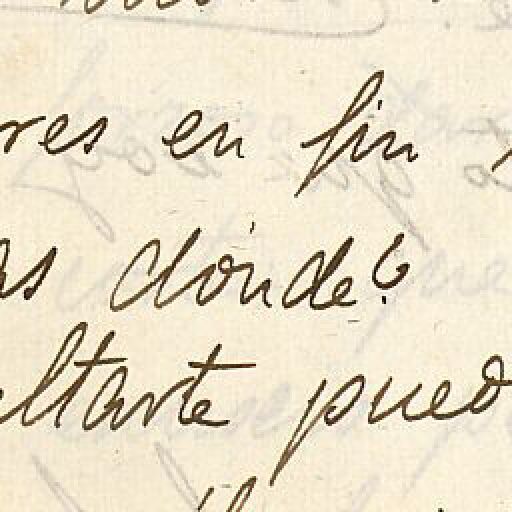 res en fin
as dónde?
ltarte pued